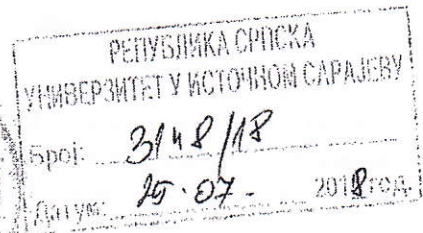 РЕПУБЛИКА СРПСКА
УНИВЕРЗИТЕТ У ИСТОЧНОМ САРАЈЕВУ
Број: 3148/18
Датум: 25.07. 2018 год.